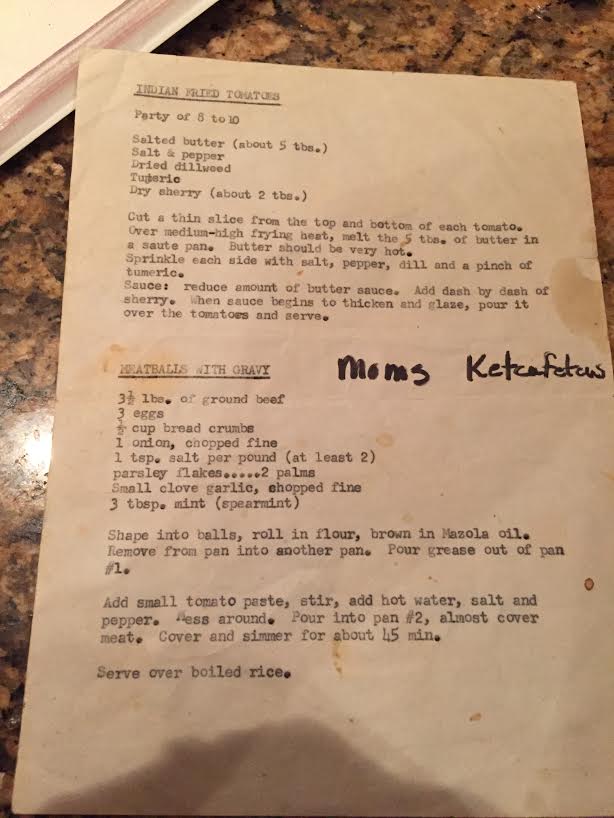 INDIAN FRIED TOMATOES
Party of 8 to 10
Salted butter (about 5 tbs.)
Salt & pepper
Dried dillweed
Tumeric
Dry sherry (about 2 tbs.)
Cut a thin slice from the top and bottom of each tomato.
Over medium-high frying heat, melt the 5 tbs. of butter in
a saute pan. Butter should be very hot.
Sprinkle each side with salt, pepper, dill and a pinch of
tumeric.
Sauce: reduce amount of butter sauce. Add dash by dash of
sherry. When sauce begins to thicken and glaze, pour it
over the tomatoes and serve.
MEATBALLS WITH GRAVY
Moms Ketcafetaws
3½ lbs. of ground beef
3 eggs
½ cup bread crumbs
1 onion, chopped fine
1 tsp. salt per pound (at least 2)
parsley flakes.....2 palms
Small clove garlic, chopped fine
3 tbsp. mint (spearmint)
Shape into balls, roll in flour, brown in Mazola oil.
Remove from pan into another pan. Pour grease out of pan
#1.
Add small tomato paste, stir, add hot water, salt and
pepper. Mess around. Pour into pan #2, almost cover
meat. Cover and simmer for about 45 min.
Serve over boiled rice.